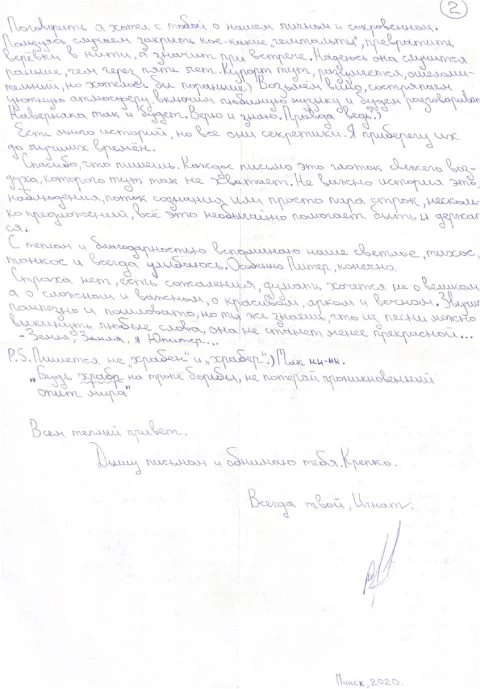 2
Поговорить я хотел с тобой о нашем личном и сокровенном.
Пользуясь случаем закрыть кое-какие "гештальты", превратить
верёвки в нити, а значит при встрече. Надеюсь она случится
раньше, чем через пять лет. Курорт тут, разумеется, ошеломи-
тельный, но хотелось бы пораньше) Возьмём вина, состряпаем
уютную атмосферу, включим любимую музыку и будем разговаривать
Наверняка так и будет. Верю и знаю. Правда ведь.)
Есть много историй, но все они секретики. Я приберегу их
до лучших времён.
Спасибо, что пишешь. Каждое письмо это глоток свежего воз-
духа, которого тут так не хватает. Не важно история это,
наблюдения, поток сознания или просто пара строк, несколь-
ко предложений, всё это необычайно помогает быть и держат
ся.
С теплом и благодарностью вспоминаю наше светлое, тихое,
тонкое и всегда улыбаюсь. Особенно Питер, конечно.
Страха нет, есть сожаления, думать хочется не о великом
а о сложном и важном, о красивом, ярком и вечном. Звучит
помпезно и пошловато, но ты же знаешь, что из песни можно
выкинуть любые слова, она не станет менее прекрасной...
-Земля? Земля, я Юпитер...
P.S. Пишется не "храбен" и "храбер".) Мак ни-ни.
"Будь храбр на тропе борьбы, не потеряй проникновенный
опыт мира"
Всем тёплый привет.
Дышу письмом и обнимаю тебя. Крепко.
Всегда твой, Игнат.
Минск, 2020.